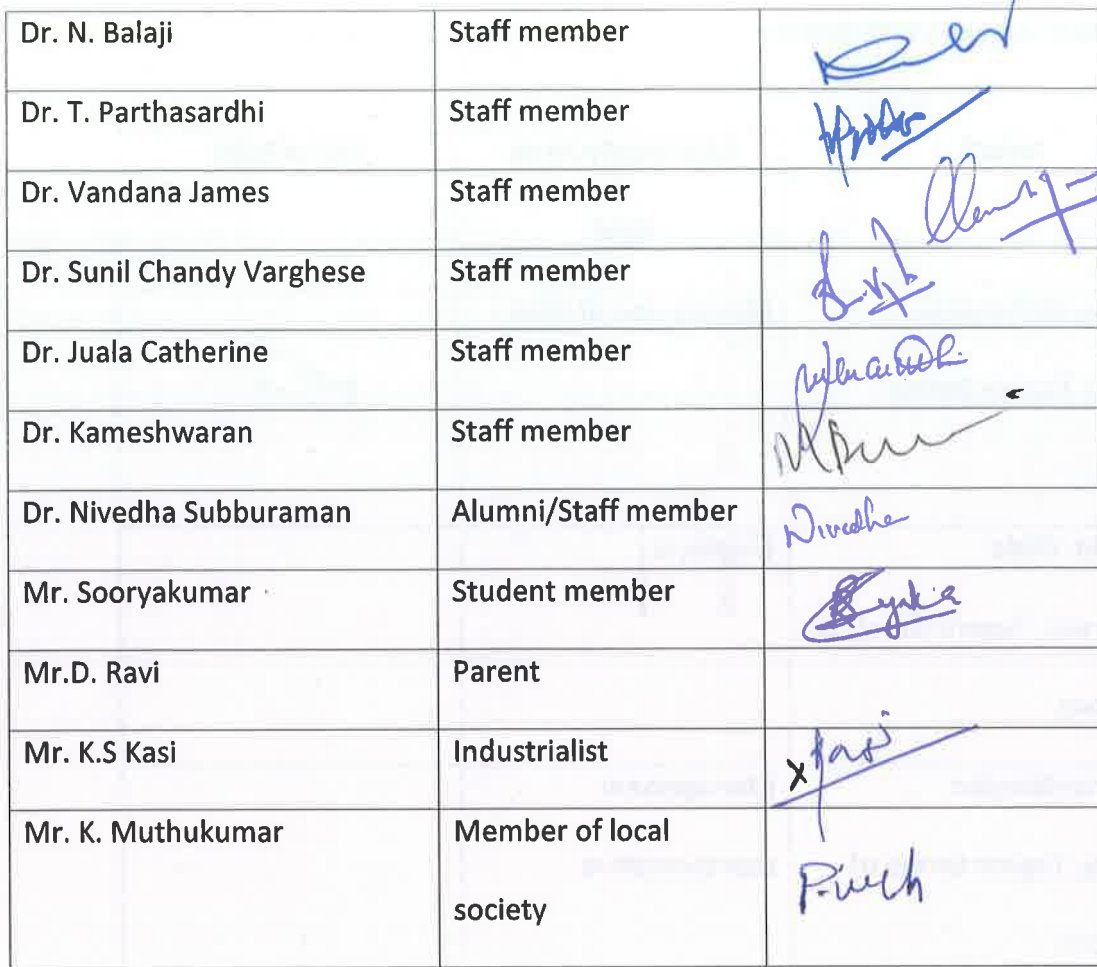 Dr. N. Balaji Staff member
Dr. T. Parthasardhi Staff member
Dr. Vandana James Staff member
Dr. Sunil Chandy Varghese Staff member
Dr. Juala Catherine Staff member
Dr. Kameshwaran Staff member
Dr. Nivedha Subburaman Alumni/Staff member Nivedha
Mr. Sooryakumar Student member
Mr.D. Ravi Parent
Mr. K.S Kasi Industrialist X Kasi
Mr. K. Muthukumar Member of local
society